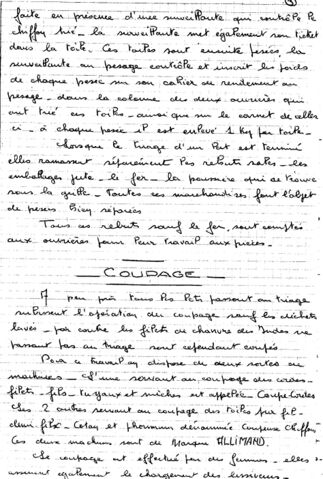 faite en présence d'une surveillante qui contrôle le
chiffon trié - la surveillante met également son ticket
dans la toile. Ces toiles sont ensuite pesées la
surveillante au pesage contrôle et inscrit les poids
de chaque pesée sur son cahier de rendement au
pesage - dans la colonne des deux ouvrières qui
ont trié ces toiles - ainsi que sur le carnet de celles
ci - à chaque pesée il est enlevé 1 kg par toile -
Lorsque le triage d'un lot est terminé
elles ramassent séparément les rebuts sales - les
emballages jute - le fer - la poussière qui se trouve
sous la grille - Toutes ces marchandises font l'objet
de pesées bien séparées
Tous ces rebuts sauf le fer, sont comptés
aux ouvrières pour leur travail aux pièces -
COUPAGE
A peu près tous les lots passant au triage
subissent l'opération du coupage sauf les déchets
lavés - par contre les filets de chanvre des Indes ne
passant pas au triage sont cependant coupés -
Pour ce travail on dispose de deux sortes de
machines - L'une servant au coupage des cordes -
filets - fils - tuyaux et mèches est appelée Coupe Cordes
Les 2 autres servant au coupage des toiles pur fil -
demi-fils - Coton et dénommée Coupeuse Chiffon
Ces deux machines sont de Marque ALLIMAND.
Le coupage est effectué par des femmes - elles
assurent également le chargement des lessiveurs -